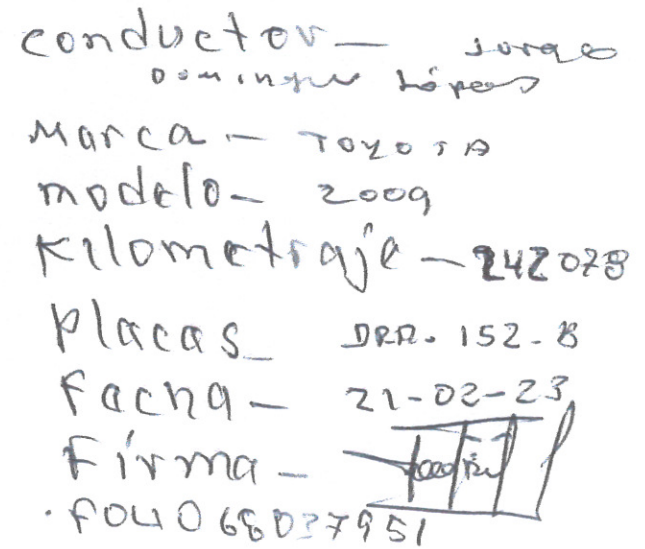 conductor - Jorge
Dominguez López
Marca - TOYOTA
modelo - 2009
Kilometraje - 242078
Placas - DRA. 152-B
Facha - 21-02-23
Firma -
. FOLIO 680377951